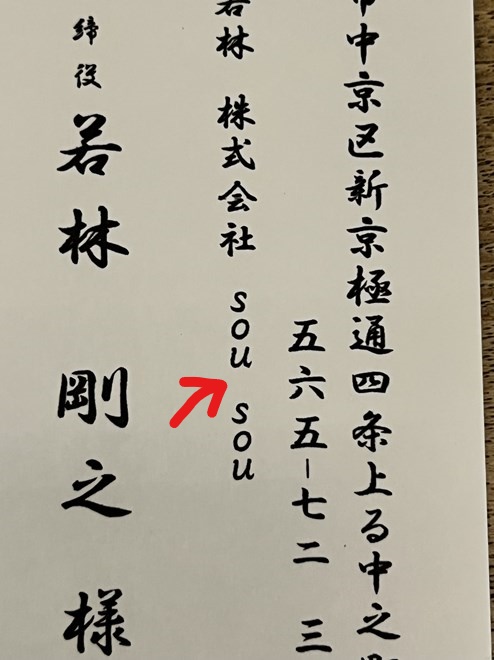 中京区新京極通四条上る中之
五六五-七二 三
若林 株式会社 sou sou
締役
若林 剛之 様